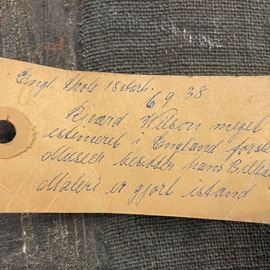 Engl. Skole 18 Aarh.
6938
Ricard Wilson meget
estimeret i England forsk
Museer besidder hans Billed
Maleri er gjort istand